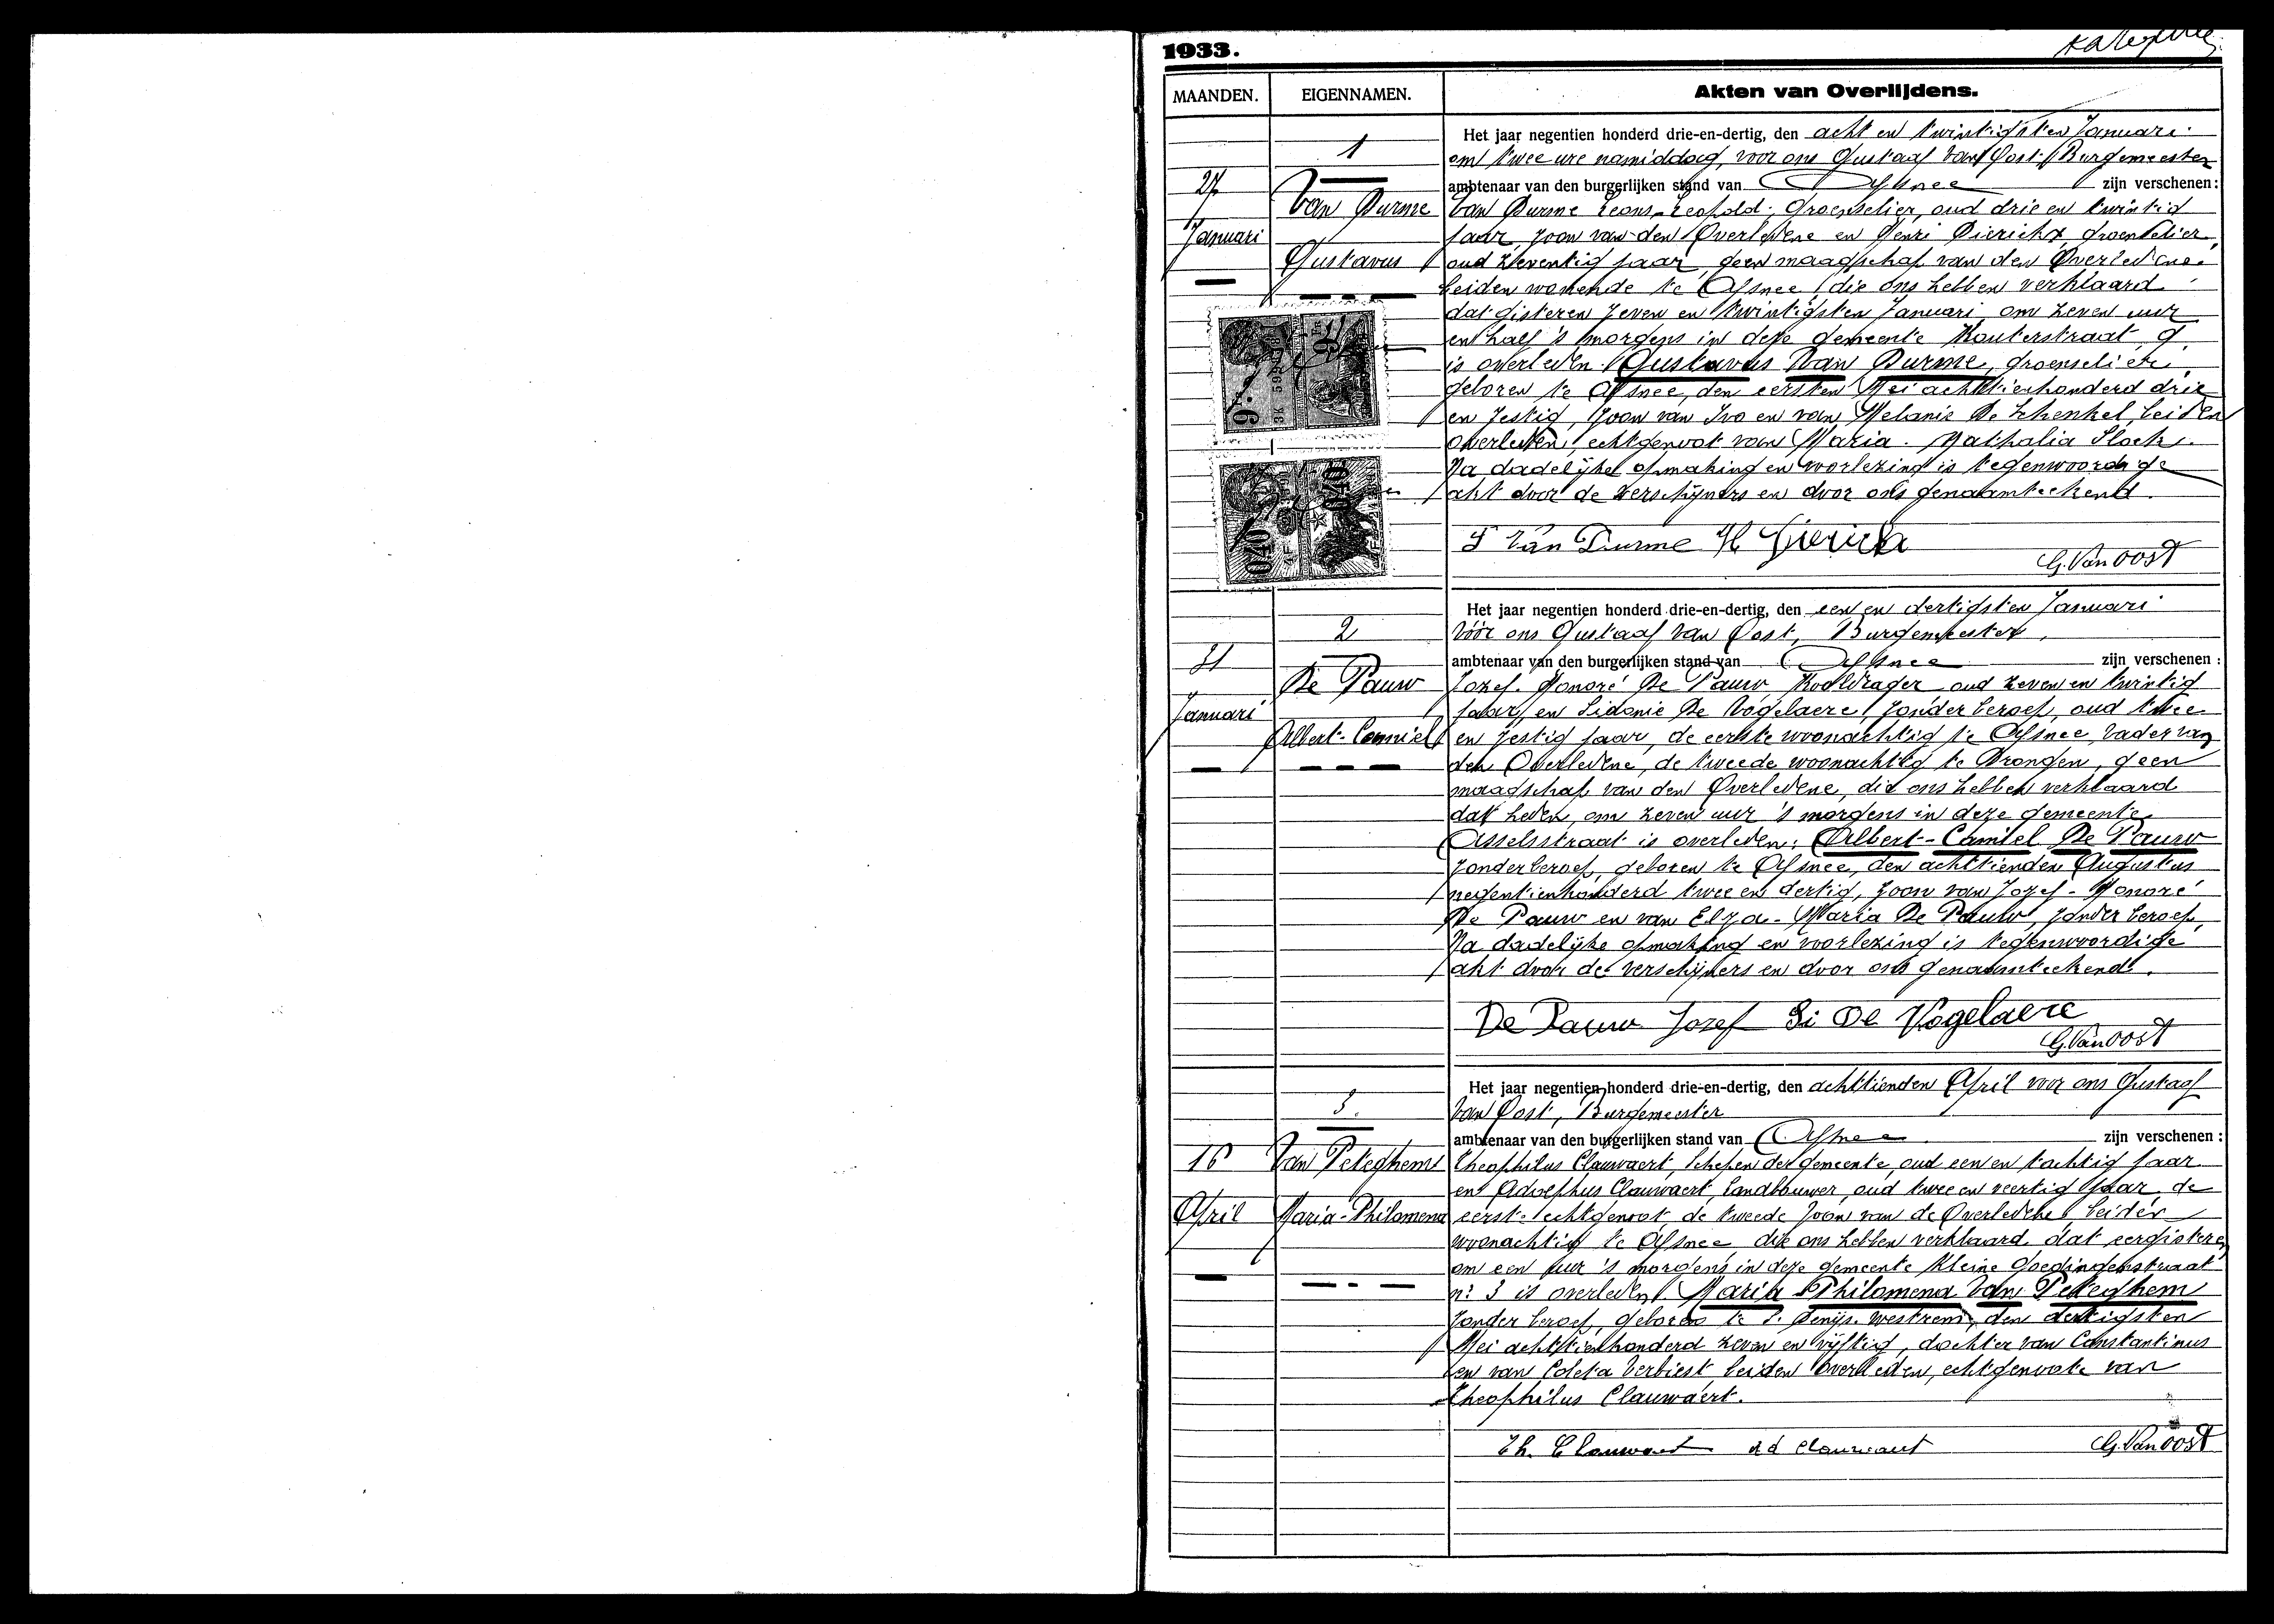 1933.
MAANDEN. EIGENNAMEN. Akten van Overlijdens.
1
27
Januari
Van Durme
Gustavus
Het jaar negentien honderd drie-en-dertig, den acht en twintigsten Januari
om twee ure namiddag, voor ons Gustaaf Van Oost, Burgemeester
ambtenaar van den burgerlijken stand van Afsnee zijn verschenen:
Van Durme Leons-Leopold, groenselier, oud drie en twintig
jaar, zoon van den Overledene en Henri Dierickx, groenselier,
oud zeventig jaar, geen maagschap van den Overledene.
beiden wonende te Afsnee, die ons hebben verklaard
dat gisteren zeven en twintigsten Januari om zeven uur
en half 's morgens in deze gemeente Kouterstraat 9
is overleden Gustavus Van Durme, groenselier,
geboren te Afsnee, den eersten Mei achttienhonderd drie
en zestig, zoon van Ivo en van Melanie De Schenkel, beiden
overleden, echtgenoot van Maria-Nathalia Slock.
Na dadelijke opmaking en voorlezing is tegenwoordige
akt door de verschijners en door ons genaamteekend.
Van Durme H Dierick
G. Van Oost
2
31
Januari
De Pauw
Albert-Camiel
Het jaar negentien honderd drie-en-dertig, den een en dertigsten Januari
vóór ons Gustaaf Van Oost, Burgemeester,
ambtenaar van den burgerlijken stand van Afsnee zijn verschenen:
Jozef-Honoré De Pauw, Kooldrager oud zeven en twintig
jaar, en Sidonie De Vogelaere, zonder beroep, oud twee
en zestig jaar, de eerste woonachtig te Afsnee, vader van
den Overledene, de tweede woonachtig te Drongen, geen
maagschap van den Overledene, die ons hebben verklaard
dat heden, om zeven uur 's morgens in deze gemeente,
Asselsstraat is overleden: Albert-Camiel De Pauw
zonder beroep, geboren te Afsnee, den achttienden Augustus
negentienhonderd twee en dertig, zoon van Jozef-Honoré
De Pauw en van Elza-Maria De Pauw, zonder beroep.
Na dadelijke opmaking en voorlezing is tegenwoordige
akt door de verschijners en door ons genaamteekend.
De Pauw Jozef Si De Vogelaere
G. Van Oost
3.
16
April
Van Peteghem
Maria-Philomena
Het jaar negentien honderd drie-en-dertig, den achttienden April voor ons Gustaaf
Van Oost, Burgemeester
ambtenaar van den burgerlijken stand van Afsnee zijn verschenen:
Theophilus Clauwaert, Schepen der gemeente, oud een en tachtig jaar
en Adolphus Clauwaert, landbouwer, oud twee en veertig jaar, de
eerste echtgenoot, de tweede zoon van de Overledene, beiden
woonachtig te Afsnee die ons hebben verklaard dat eergisteren
om een uur 's morgens in deze gemeente Kleine Goedingenstraat
n° 3 is overleden Maria Philomena Van Peteghem
zonder beroep, geboren te St Denijs-Westrem, den dertigsten
Mei achttienhonderd zeven en vijftig, dochter van Constantinus
en van Coleta Verbiest, beiden overleden, echtgenoote van
Theophilus Clauwaert.
Th. Clauwaert Ad Clauwaert G. Van Oost